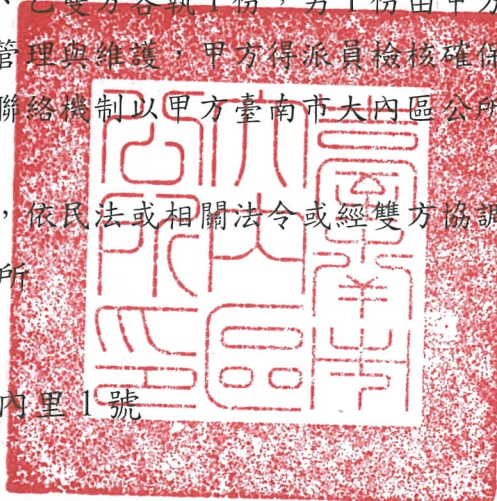 、乙雙方各執1份，另1份由甲方
管理與維護，甲方得派員檢核確保
聯絡機制以甲方臺南市大內區公所
，依民法或相關法令或經雙方協調
所
內里1號
臺南市
大內區
公所印